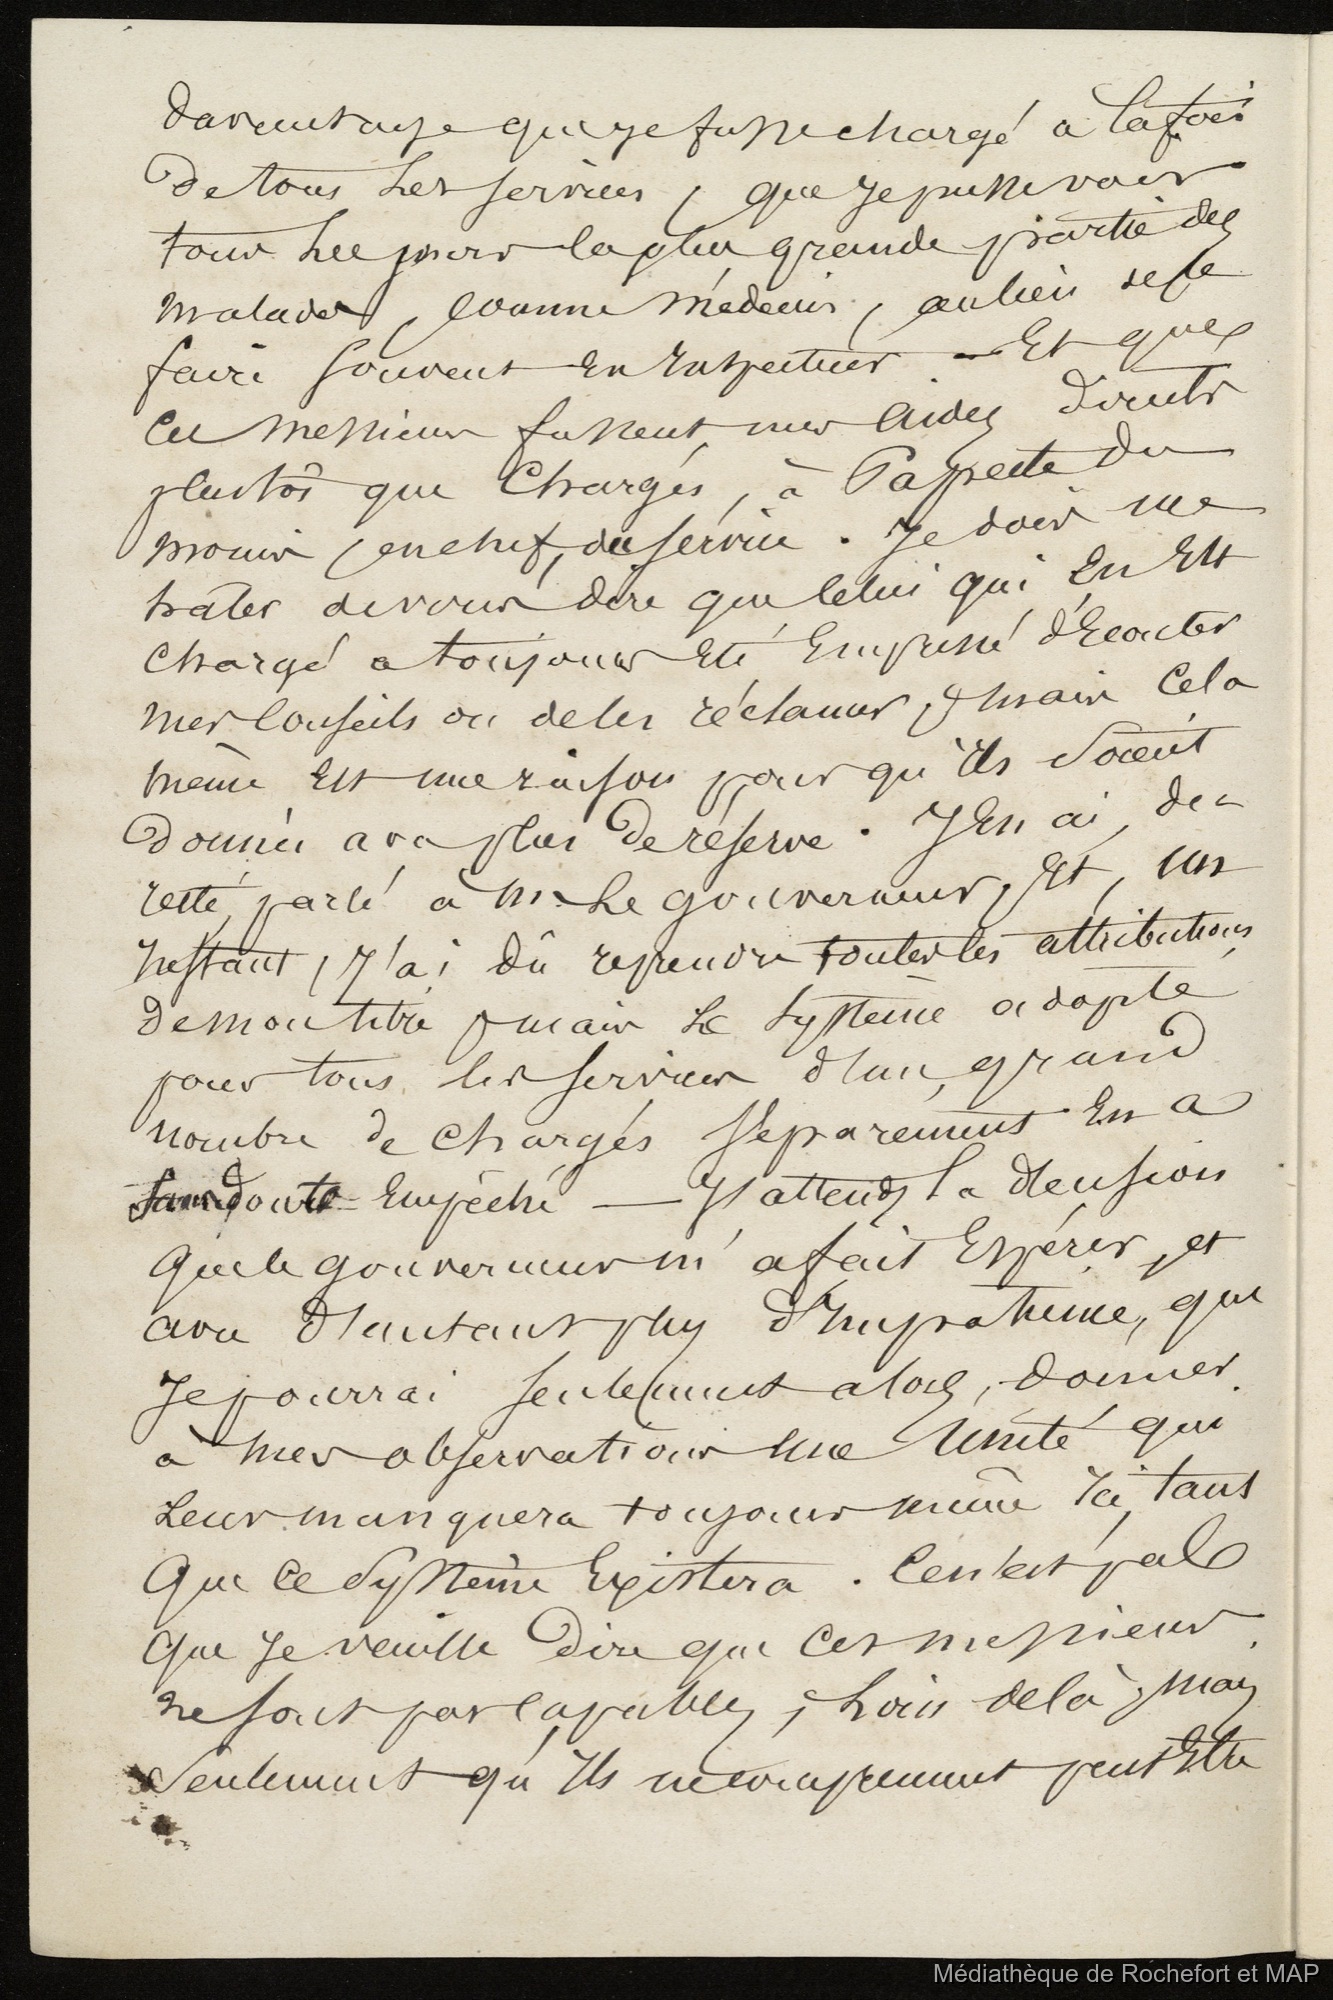 davantage que je fusse chargé a la fois
de tous Les services, que je pusse voir
tous Les jours la plus grande partie des
malades, comme Médecin, au lieu de le
faire souvent en Inspecteur — Et que
ces messieurs fussent mes aides directs
plustôt que Chargés, à
moins, en chef, du service. Je dois me
hâter de vous dire que celui qui En Est
chargé a toujours Eté Empressé d'Ecouter
mes Conseils ou de les réclamer, mais Cela
même Est une raison pour qu'ils soient
donnés avec plus de réserve. J'En ai, du
reste, parlé à Mr. Le gouverneur, Et, un
Instant, J'ai dû reprendre toutes les attributions
de mon titre, mais Le Système adopté
pour tous les services d'un grand
nombre de chargés Séparément En a
sans doute Empêché — J'attends la décision
que le gouverneur m'a fait Espérer, et
avec d'autant plus d'Impatience, que
Je pourrai seulement alors, donner
à mes observations une Unité qui
Leur manquera toujours même Ici, tant
Que Ce Système Existera. Ce n'est pas
Que Je veuille Dire que Ces messieurs
ne sont pas capables, Loin de là, mais
Seulement qu'Ils ne comprennent peut Etre
Médiathèque de Rochefort et MAP